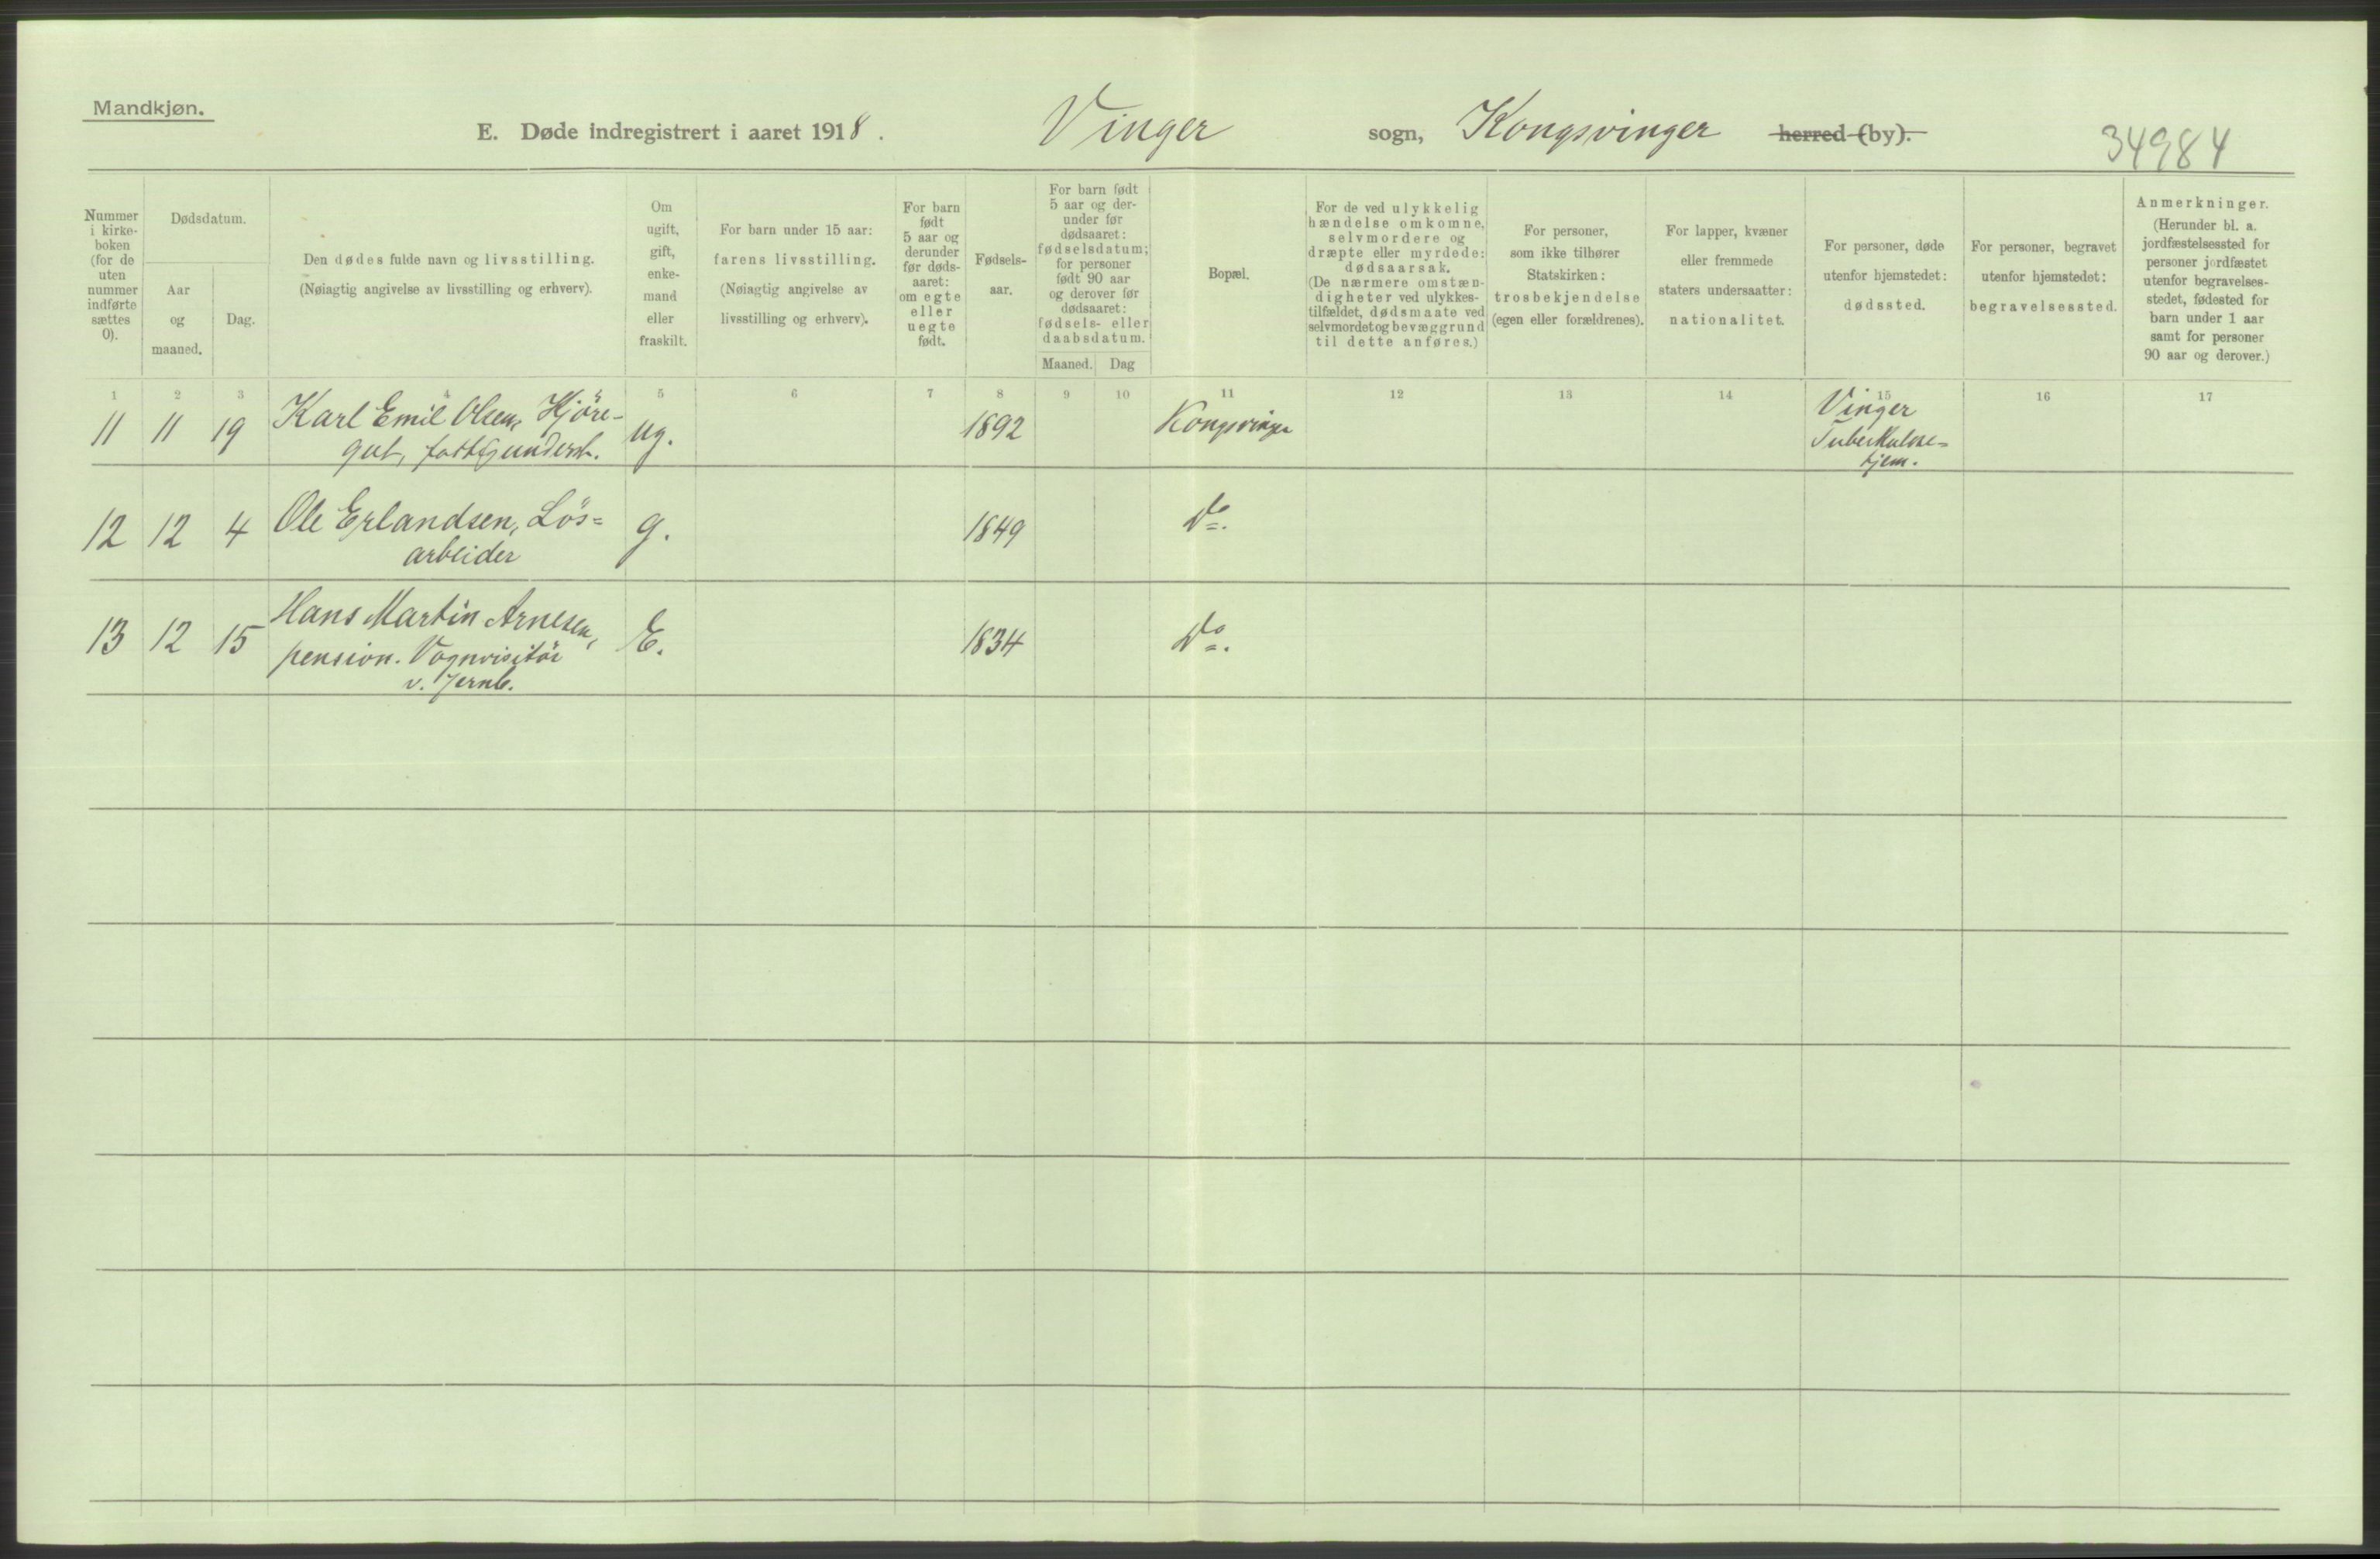 Mandkjøn.
E. Døde indregistrert i aaret 1918.
Vinger sogn, Kongsvinger herred (by).
34984
Nummer
i kirke-
boken
(for de
uten
nummer
indførte
sættes
0).
Dødsdatum.
Aar
og
maaned.
Dag.
Den dødes fulde navn og livsstilling.
(Nøiagtig angivelse av livsstilling og erhverv).
Om
ugift,
gift,
enke-
mand
eller
fraskilt.
For barn under 15 aar:
farens livsstilling.
(Nøiagtig angivelse av
livsstilling og erhverv).
For barn
født
5 aar og
derunder
før døds-
aaret:
om egte
eller
uegte
født.
Fødsels-
aar.
For barn født
5 aar og der-
under før
dødsaaret:
fødselsdatum;
for personer
født 90 aar
og derover før
dødsaaret:
fødsels- eller
daabsdatum.
Maaned. Dag
Bopæl.
For de ved ulykkelig
hændelse omkomne,
selvmordere og
dræpte eller myrdede:
dødsaarsak.
(De nærmere omstæn-
digheter ved ulykkes-
tilfældet, dødsmaate ved
selvmordet og bevæggrund
til dette anføres.)
For personer,
som ikke tilhører
Statskirken:
trosbekjendelse
(egen eller forældrenes).
For lapper, kvæner
eller fremmede
staters undersaatter:
nationalitet.
For personer, døde
utenfor hjemstedet:
dødssted.
For personer, begravet
utenfor hjemstedet:
begravelsessted.
Anmerkninger.
(Herunder bl. a.
jordfæstelsessted for
personer jordfæstet
utenfor begravelses-
stedet, fødested for
barn under 1 aar
samt for personer
90 aar og derover.)
1 2 3 4 5 6 7 8 9 10 11 12 13 14 15 16 17
11 11 19 Karl Emil Olsen, Kjöre- ug. 1892 Kongsvinger Vinger
gut, fattigunderst. Tuberkulose=
hjem.
12 12 4 Ole Erlandsen, Lös= g. 1849 Do.
arbeider
13 12 15 Hans Martin Arnesen, E. 1834 Do.
pension. Vognvisitör
v. Jernb.